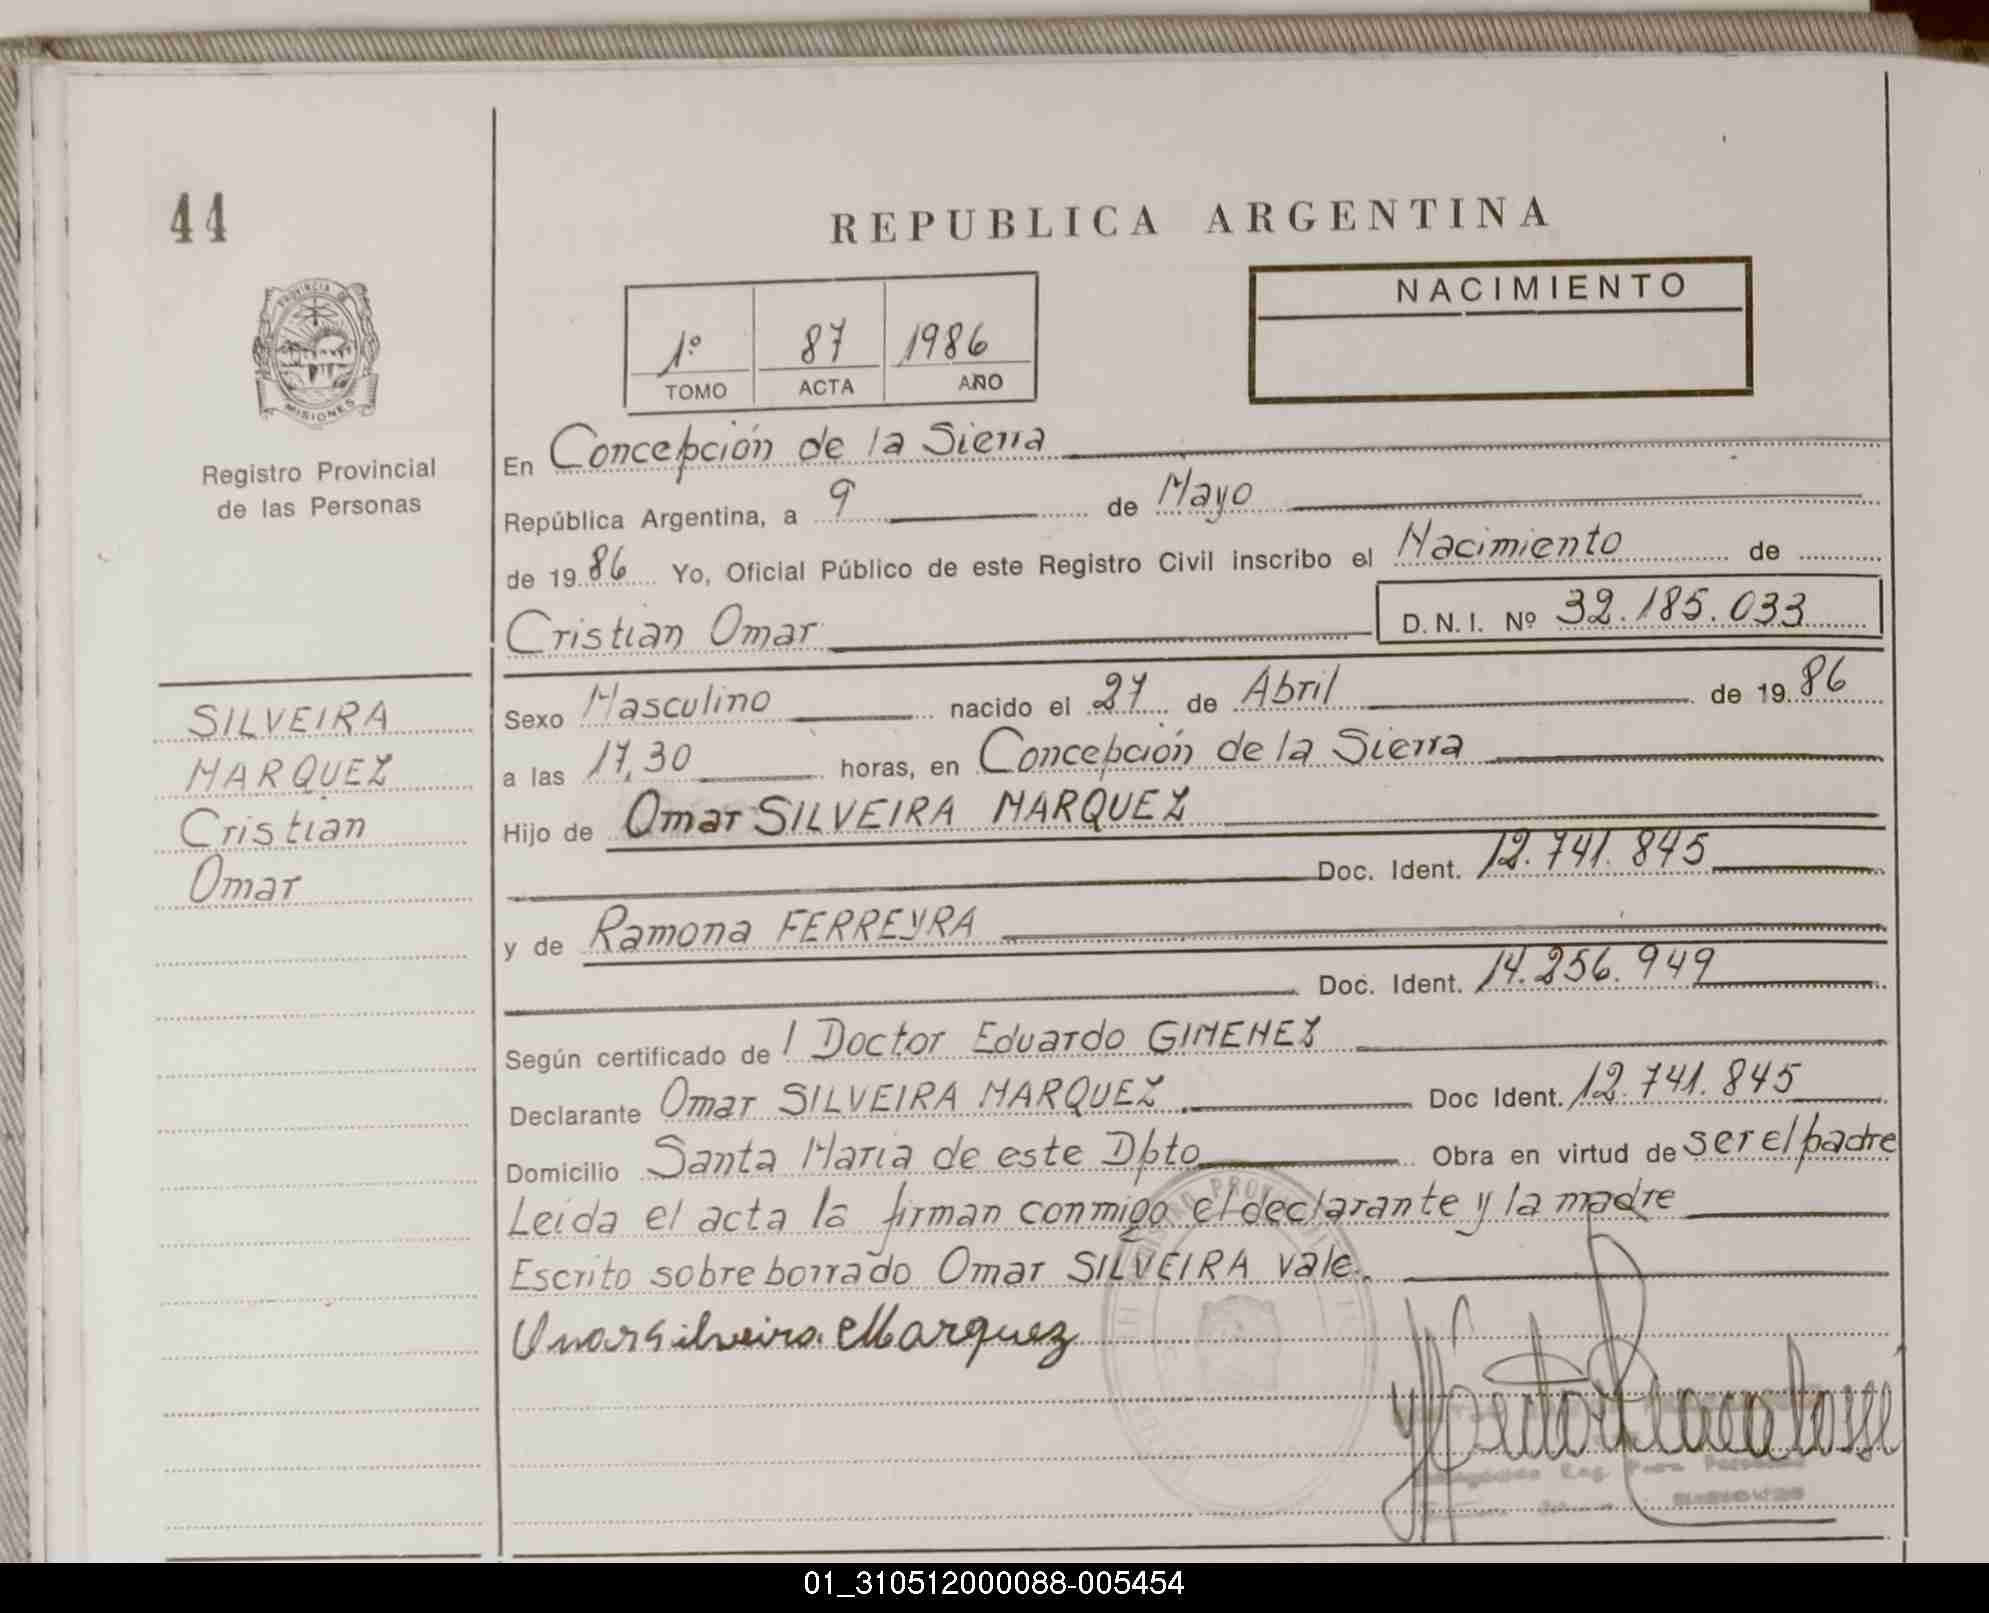 44
REPUBLICA ARGENTINA
PROVINCIA DE
MISIONES
Registro Provincial
de las Personas
NACIMIENTO
1º 87 1986
TOMO ACTA AÑO
En Concepción de la Sierra
República Argentina, a 9 de Mayo
de 1986 Yo, Oficial Público de este Registro Civil inscribo el Nacimiento de
Cristian Omar D.N.I. Nº 32.185.033
SILVEIRA
MARQUEZ
Cristian
Omar
Sexo Masculino nacido el 27 de Abril de 1986
a las 17,30 horas, en Concepción de la Sierra
Hijo de Omar SILVEIRA MARQUEZ
Doc. Ident. 12.741.845
y de Ramona FERREYRA
Doc. Ident. 14.256.949
Según certificado de l Doctor Eduardo GIMENEZ
Declarante Omar SILVEIRA MARQUEZ Doc Ident. 12.741.845
Domicilio Santa Maria de este Dpto Obra en virtud de ser el padre
Leída el acta la firman conmigo el declarante y la madre
Escrito sobre borrado Omar SILVEIRA vale.
Omar Silveira Marquez
01_310512000088-005454